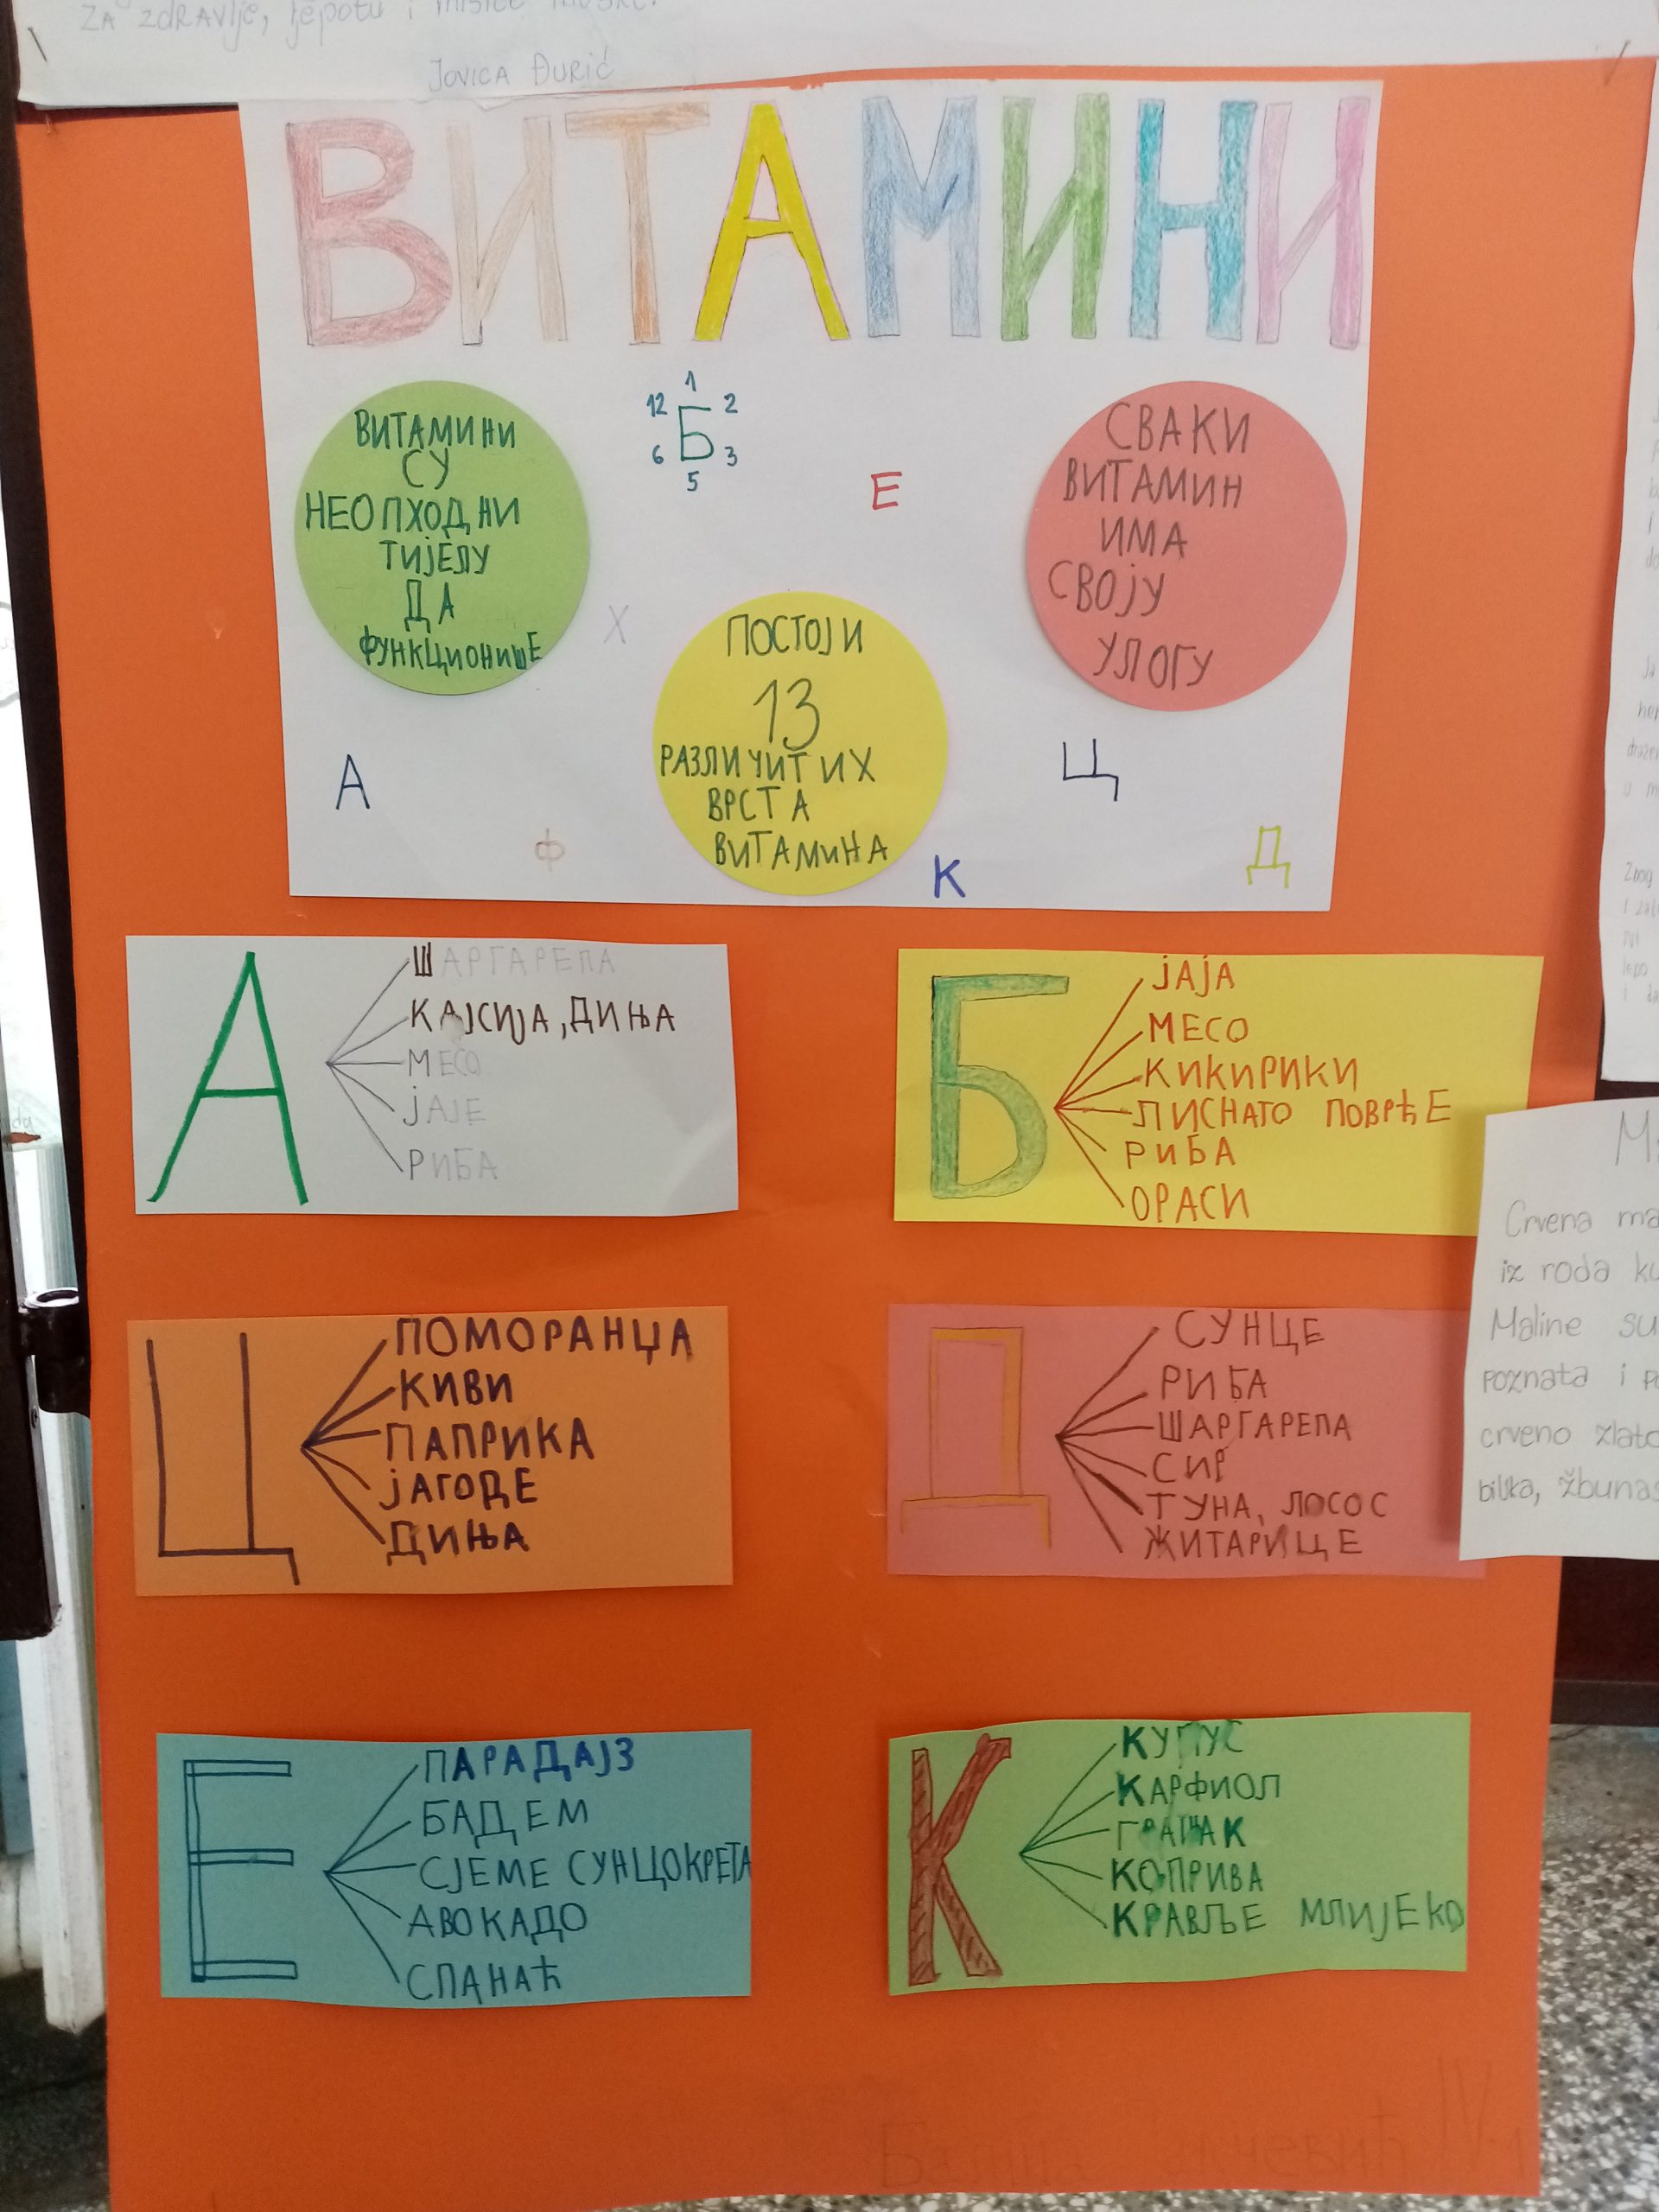 ZA zdRAVlje, ljepotu i
JOVICA ĐURIĆ
ВИТАМИНИ
ВИТАМИНИ
СУ
НЕОПХОДНИ
ТИЈЕЛУ
ДА
ФУНКЦИОНИШЕ
1
12 2
Б
6 3
5
Е
СВАКИ
ВИТАМИН
ИМА
СВОЈУ
УЛОГУ
Х
ПОСТОЈИ
13
РАЗЛИЧИТИХ
ВРСТА
ВИТАМИНА
А
Ф
К
Ц
Д
А
ШАРГАРЕПА
КАЈСИЈА, ДИЊА
МЕСО
ЈАЈЕ
РИБА
Б
ЈАЈА
МЕСО
КИКИРИКИ
ЛИСНАТО ПОВРЋЕ
РИБА
ОРАСИ
Ц
ПОМОРАНЏА
КИВИ
ПАПРИКА
ЈАГОДЕ
ДИЊА
Д
СУНЦЕ
РИБА
ШАРГАРЕПА
СИР
ТУНА, ЛОСОС
ЖИТАРИЦЕ
Е
ПАРАДАЈЗ
БАДЕМ
СЈЕМЕ СУНЦОКРЕТА
АВОКАДО
СПАНАЋ
К
КУПУС
КАРФИОЛ
ГРАШАК
КОПРИВА
КРАВЉЕ МЛИЈЕКО
Crvena
iz roda
Maline su
poznata i
crveno zlato
biljka,